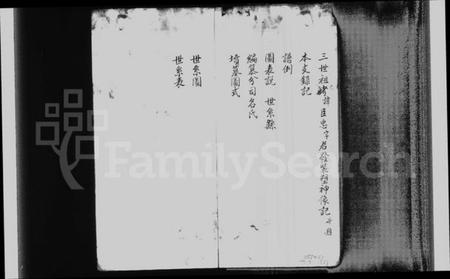 三世祖諱臣忠字君發裝塑神像記
本支錄記
譜例
圖表說 世系縣
編纂分司名氏
墳墓圖式
世系圖
世系表
FamilySearch